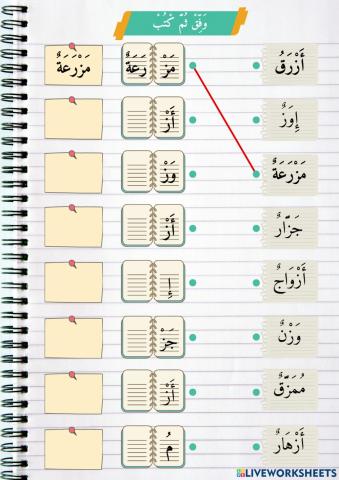 وَفِّقْ ثُمَّ كْتُبْ
أَزْرَقُ مَزْ رَعَةٌ مَزْرَعَةٌ
إِوَزٌ أَزْ
مَزْرَعَةٌ وَزْ
جَزَّارٌ أَزْ
أَزْوَاجٌ إِ
وَزْنٌ جَزْ
مُمَزَّقٌ أَزْ
أَزْهَارٌ مُ
LIVEWORKSHEETS